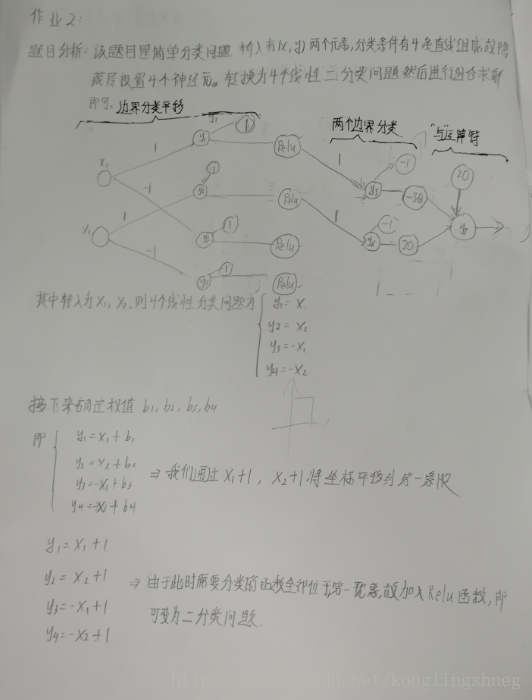 作业2:
题目分析: 该题目是简单分类问题. 输入有(x, y)两个元素,分类条件有4条直线组成,故隐
藏层设置4个神经元。转换为4个线性二分类问题然后进行组合求解
即可.
边界分类平移
两个边界分类
"与"运算符
x₁
1
-1
y₁
1
Relu
1
y₅
-1
-30
20
y₇
y₂
1
Relu
x₂
1
-1
y₃
1
Relu
1
y₆
-1
20
1
Relu
其中输入为x₁, x₂, 则4个线性分类问题为
y₁=x₁
y2=x₂
y₃=-x₁
y4=-x₂
接下来确定权值 b1, b2, b3, b4
即
y₁=x₁+b₁
y₂=x₂+b₂
y₃=-x₁+b₃
y4=-x₂+b4
⇒我们通过 x₁+1, x₂+1 将坐标平移到第一象限
y₁=x₁+1
y₂=x₂+1
y₃=-x₁+1
y₄=-x₂+1
⇒由于此时需要分类的函数全部位于第一象限,故加入Relu函数,即
可变为二分类问题.